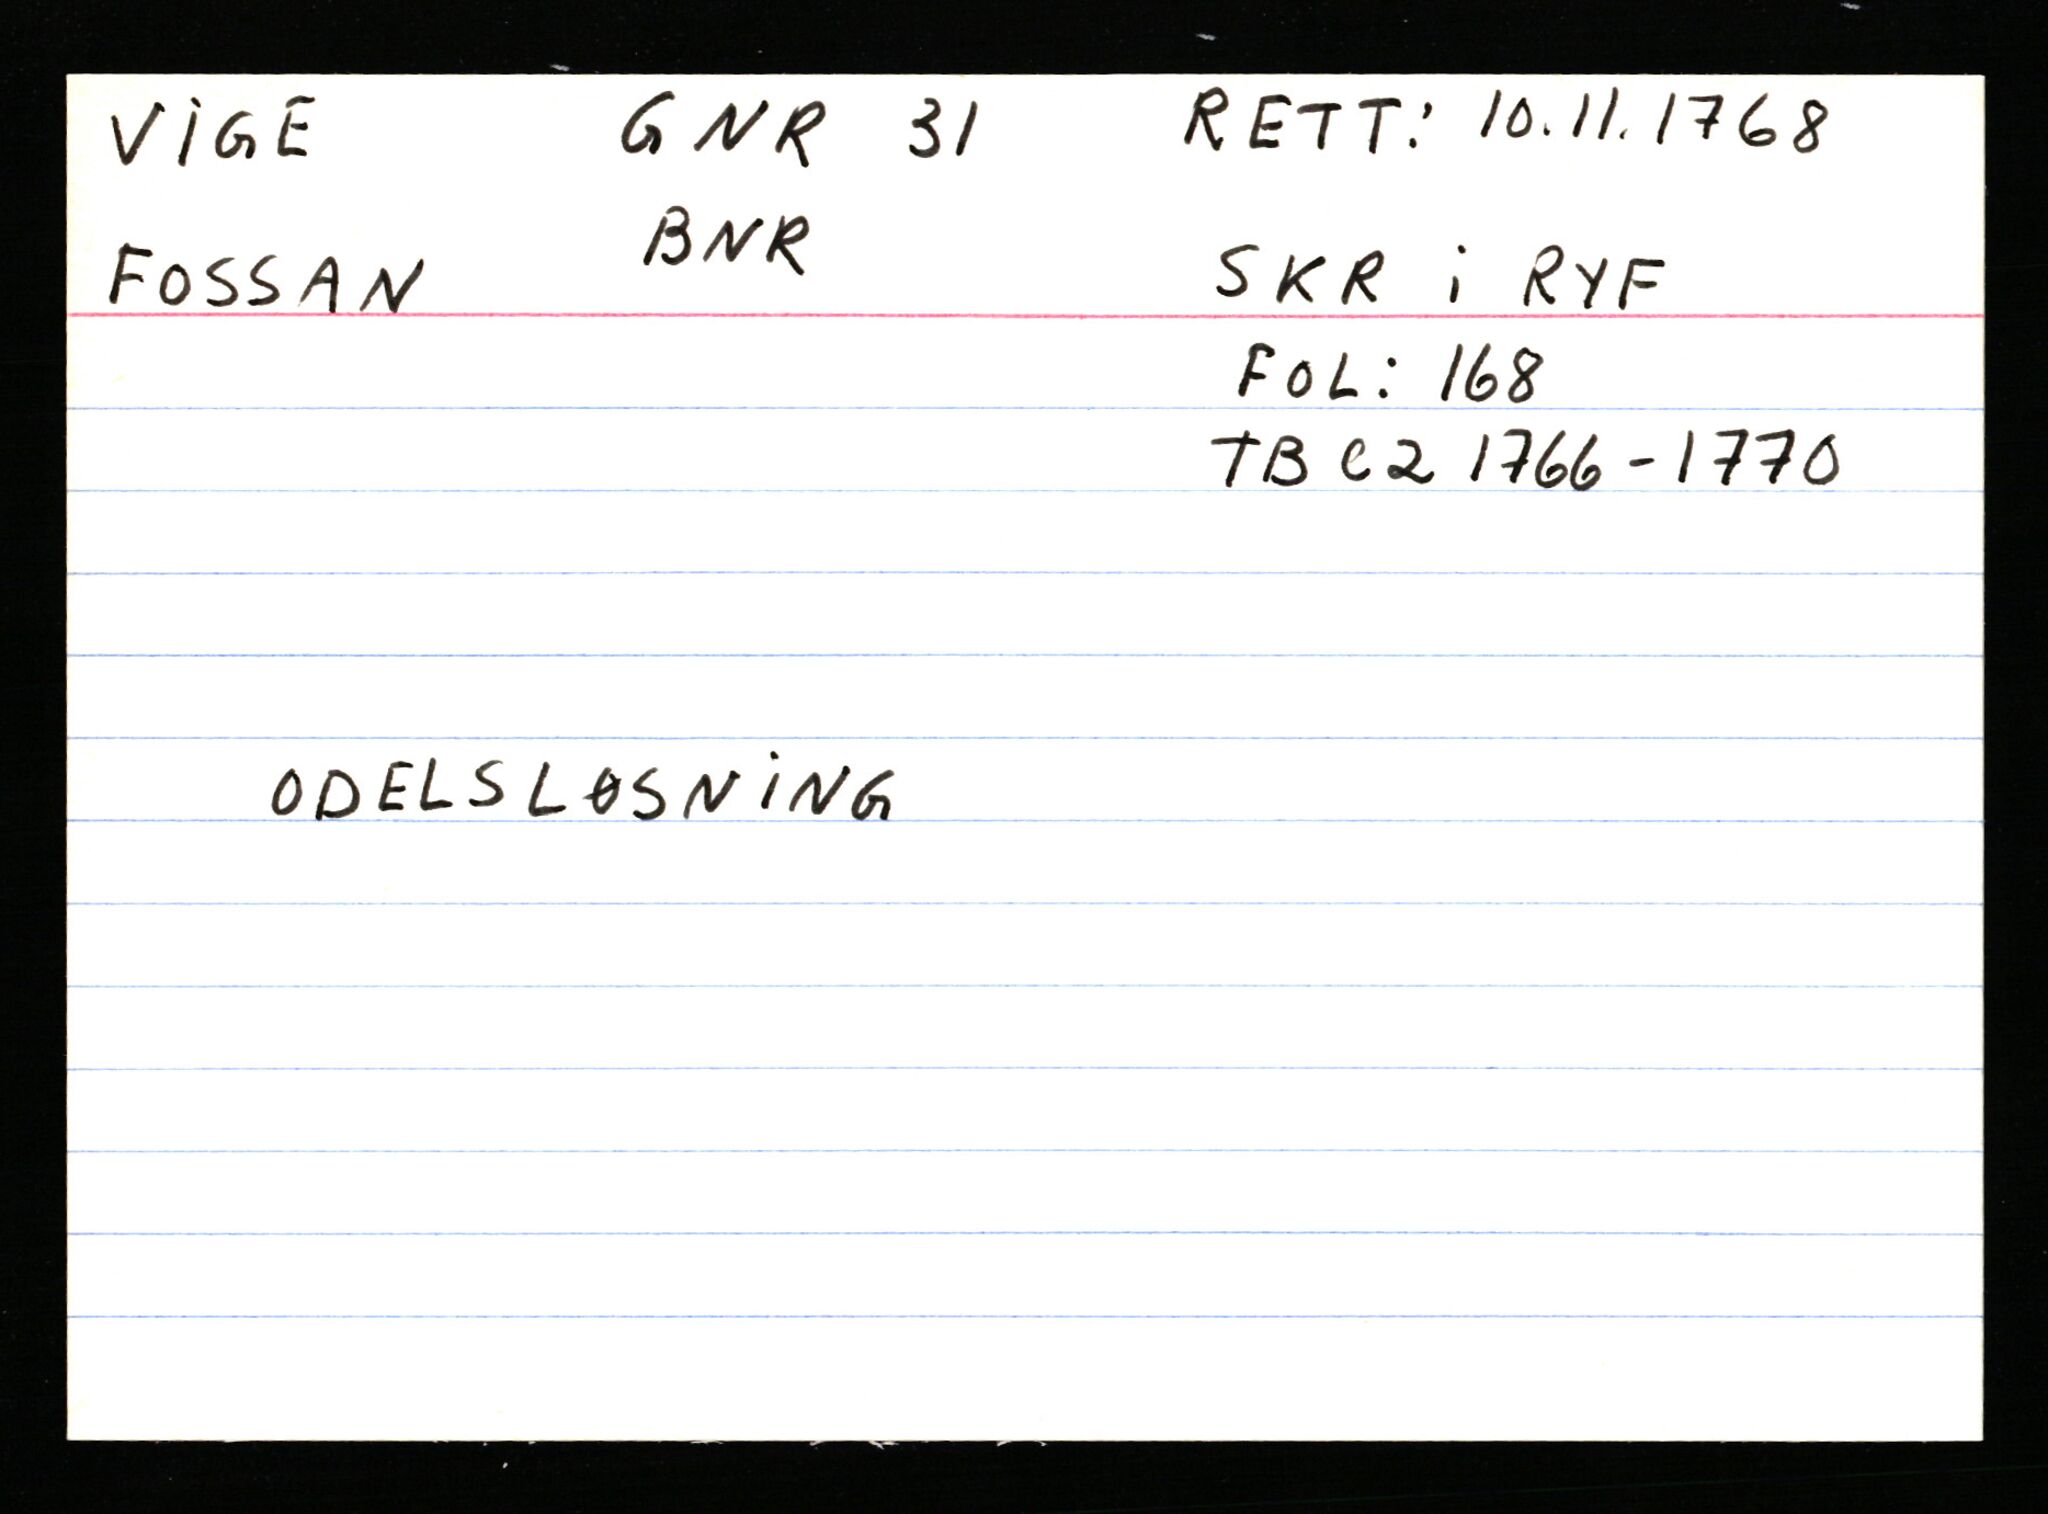 ViGE GNR 31 RETT: 10.11.1768
BNR
FOSSAN SKR i RYF
FOL: 168
TB C2 1766-1770
ODELSLØSNiNG